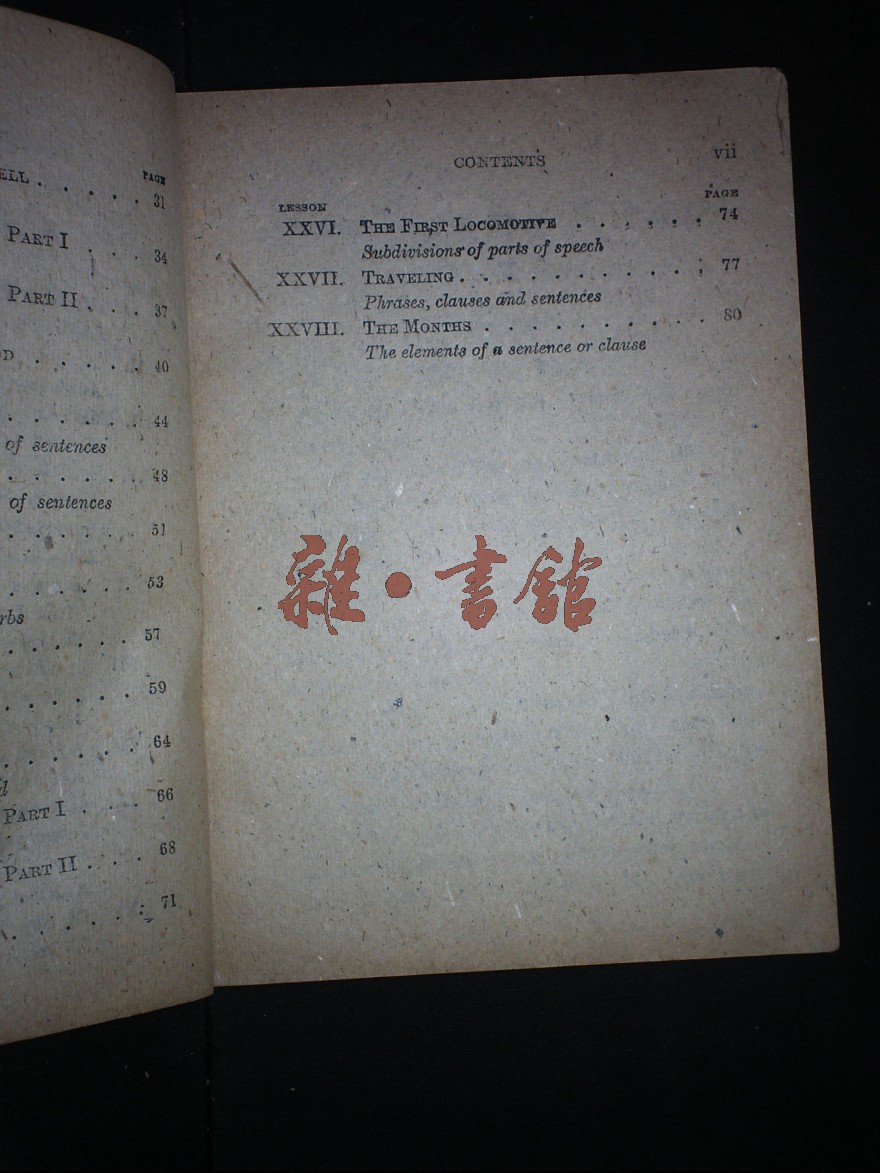 ELL . . . . . 31
PAGE
PART I . . . 34
PART II . . . 37
OD . . . . . 40
. . . . . . . 44
of sentences
. . . . . . . 48
of sentences
. . . . . . . 51
. . . . . . . 53
rbs
. . . . . . . 57
. . . . . . . 59
. . . . . . . 64
d
PART I . . . 66
PART II . . . . 68
. . . . . . . 71
CONTENTS vii
LESSON PAGE
XXVI. THE FIRST LOCOMOTIVE . . . . . . 74
Subdivisions of parts of speech
XXVII. TRAVELING . . . . . . . . . . . 77
Phrases, clauses and sentences
XXVIII. THE MONTHS . . . . . . . . . . 80
The elements of a sentence or clause
雜·書館